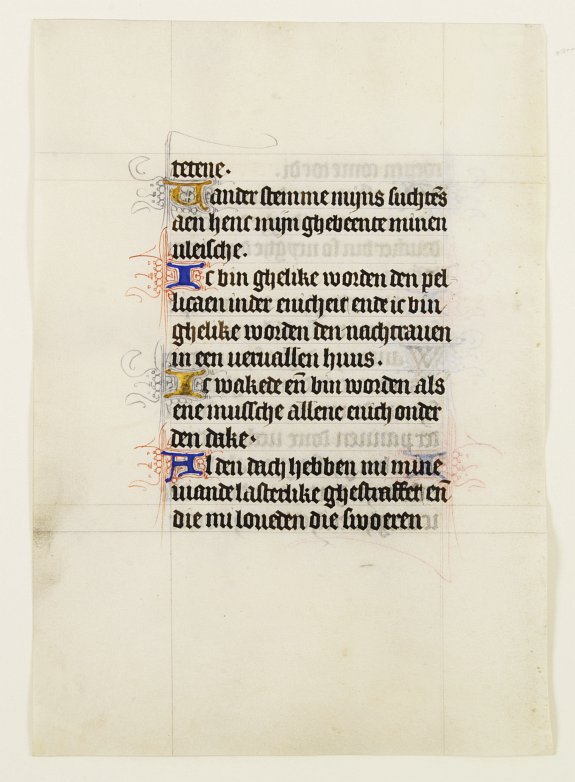 tetene.
Vander stemme mijns suchtēs
aen henc mijn ghebeente minen
vleische.
Ic bin ghelike worden den pel
licaen inder enicheit ende ic bin
ghelike worden den nachtrauen
in een veruallen huus.
Ic wakede eñ bin worden als
ene mussche allene enich onder
den dake.
Al den dach hebben mi mine
viande lasterlike ghestraffet eñ
die mi loueden die swoeren